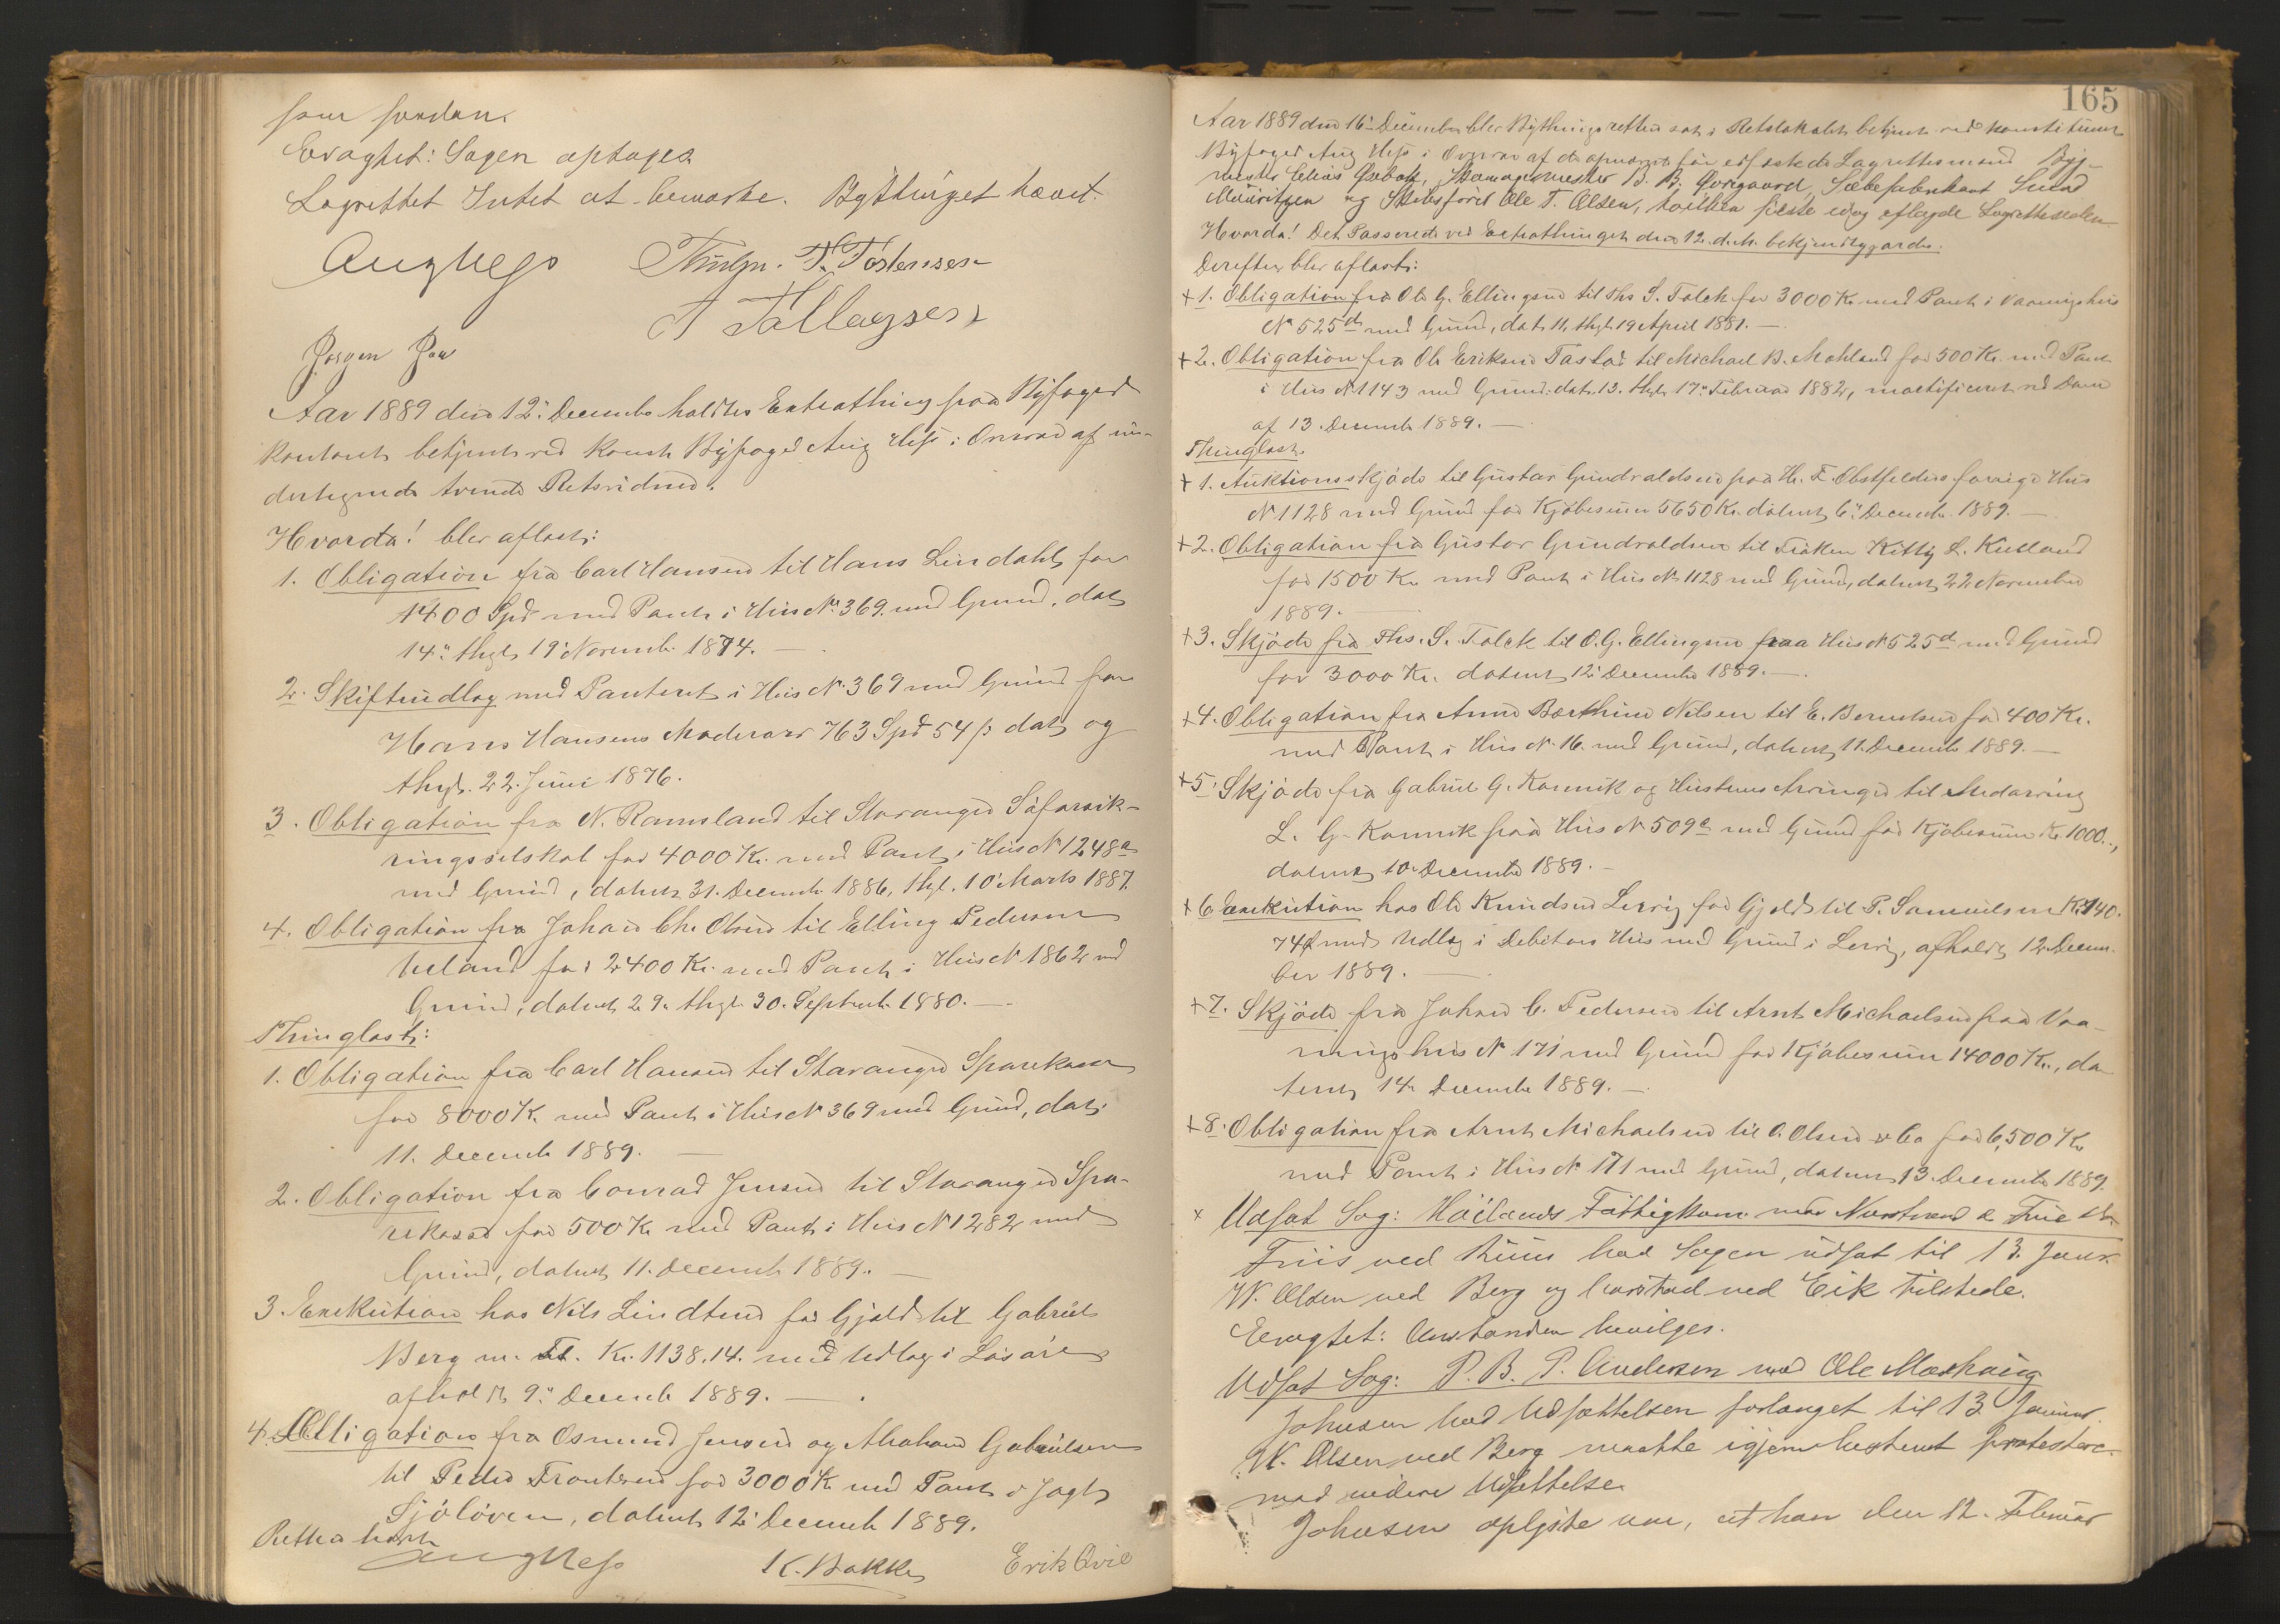 som saadan.
Eragtet: Sagen optages
Lagrettet Intet at bemærke. Bythinget hævet.
Aug Hess Thulsn. T. Tostensen
A Tallagsen
Jörgen Joa
Aar 1889 den 12. Decembr holdtes Extrathing paa Byfoged
kontoret betjent ved konst. Byfoged Aug Hess i Overvær af un-
dertegnede tvende Retsvidner.
Hvorda! blev aflæst:
1. Obligation fra Carl Hansen til Hans Lindahl for
1400 Spd med Pant i Hus No 369 med Grund, dat
14. thgl. 19 Novemb. 1874. —
2. Skifteudlæg med Panteret i Hus No 369 med Grund for
Hans Hansens Moderarv 763 Spd 54 ß dat og
thgl. 22. Juni 1876.
3. Obligation fra N. Ramsland til Stavanger Söforsik-
ringsselskab for 4000 Kr. med Pant i Hus No 1248a
med Grund, dateret 31. Decemb 1886, thgl. 10 Marts 1887.
4. Obligation fra Johan Chr. Olsen til Elling Pedersen
Ueland for 2400 Kr. med Pant i Hus No 1862 med
Grund, dateret 29. thgl. 30. Septemb. 1880. —
Thinglæst:
1. Obligation fra Carl Hansen til Stavanger Sparekasse
for 8000 K. med Pant i Hus No 369 med Grund, dat.
11. Decemb 1889. —
2. Obligation fra Conrad Jensen til Stavanger Spa-
rekasse for 500 K med Pant i Hus No 1282 med
Grund, dateret 11. Decemb 1889. —
3. Exekution hos Nils Lindtner for Gjæld til Gabriel
Berg m. Fl. Kr. 1138.14. med Udlæg i Lösöre
afholdt 9. Decemb 1889. —
4. Obligation fra Osmund Jensen og Abraham Gabrielsen
til Peder Trontsen for 3000 K med Pant i Jagt
Sjölöven, dateret 12. Decemb 1889.
Retten hævet
Aug Hess K. Bakke Erik Qvie
165
Aar 1889 den 16. December blev Bythingsretten sat i Retslokalet betjent ved konstitueret
Byfoged Aug Hess i Overvær af de opnævnte före edfæstede Lagrettesmænd Byg-
mester Helias B. B. Övregaard, Sæbefabrikant Svend
Mauritzen og Skibsförer Ole T. Olsen, hvilken sidste edog aflagde Lagretteseden
Hvorda! Det Passerede ved Extrathinget den 12. d.M. bekjendtgjordes.
Derefter blev aflæst:
+ 1. Obligation fra O. G. Ellingsen til Ths S. Falck for 3000 Kr. med Pant i Vaaningshus
No 525d med Grund, dat. 11, thgl. 19 April 1881. —
+ 2. Obligation fra Ole Eriksen Tastad til Michael B. Mohland for 500 Kr. med Pant
i Hus No 1143 med Grund. dat. 13. thgl. 17. Februar 1882, mortificeret ved Dom
af 13. Decemb 1889. —
Thinglæst.
+ 1. Auktionsskjöde til Gustav Gundvaldsen paa H. F. Obstfelders forrige Hus
No 1128 med Grund for Kjöbesum 5650 Kr. dateret 6. Decemb. 1889. —
+ 2. Obligation fra Gustav Gundvaldsen til Fröken Kitty L. Kielland
for 1500 Kr. med Pant i Hus No 1128 med Grund, dateret 22 November
1889. —
+ 3. Skjöde fra Ths. S. Falck til O. G. Ellingsen paa Hus No 525d med Grund
for 3000 Kr. dateret 12. Decembr 1889. —
+ 4. Obligation fra Anne Barthine Nilsen til E. Berentsen for 400 Kr.
med Pant i Hus No 16. med Grund, dateret 11. Decemb 1889. —
+ 5. Skjöde fra Gabriel G. Kannik og Hustrues Arvinger til Medarving
L. G. Kannik paa Hus No 509a med Grund for Kjöbesum Kr. 1000.,
dateret 10. Decembr 1889. —
+ 6. Exekution hos Ole Knudsen Lervig for Gjæld til P. Samuelsen Kr. 140.
74 med Udlæg i Debitors Hus med Grund i Lervig, afholdt 12. Decem-
ber 1889. —
+ 7. Skjöde fra Johan C. Pedersen til Arnt Michaelsen paa Vaa-
ningshus No 171 med Grund for Kjöbesum 14000 Kr., da-
teret 14. Decembr 1889. —
+ 8. Obligation fra Arnt Michaelsen til O. Olsen & Co for 6,500 Kr
med Pant i Hus No 171 med Grund, dateret 13. Decembr 1889.
x Udsat Sag: Höilands Fattigkom. mod
Friis ved Ruus bad Sagen udsat til 13. Janr.
W. Olsen ved Berg og Caroted ved Eik tilstede.
Eragtet: Anstanden bevilges.
Udsat Sag: P. B. P. Andersen mod Ole Moshaug
Johnsen bad Udsættelsen forlænget til 13 Januar.
W. Olsen ved Berg maatte igjen bestemt protestere
mod videre Udsættelse
Johnsen oplyste om, at han den 12. Februar